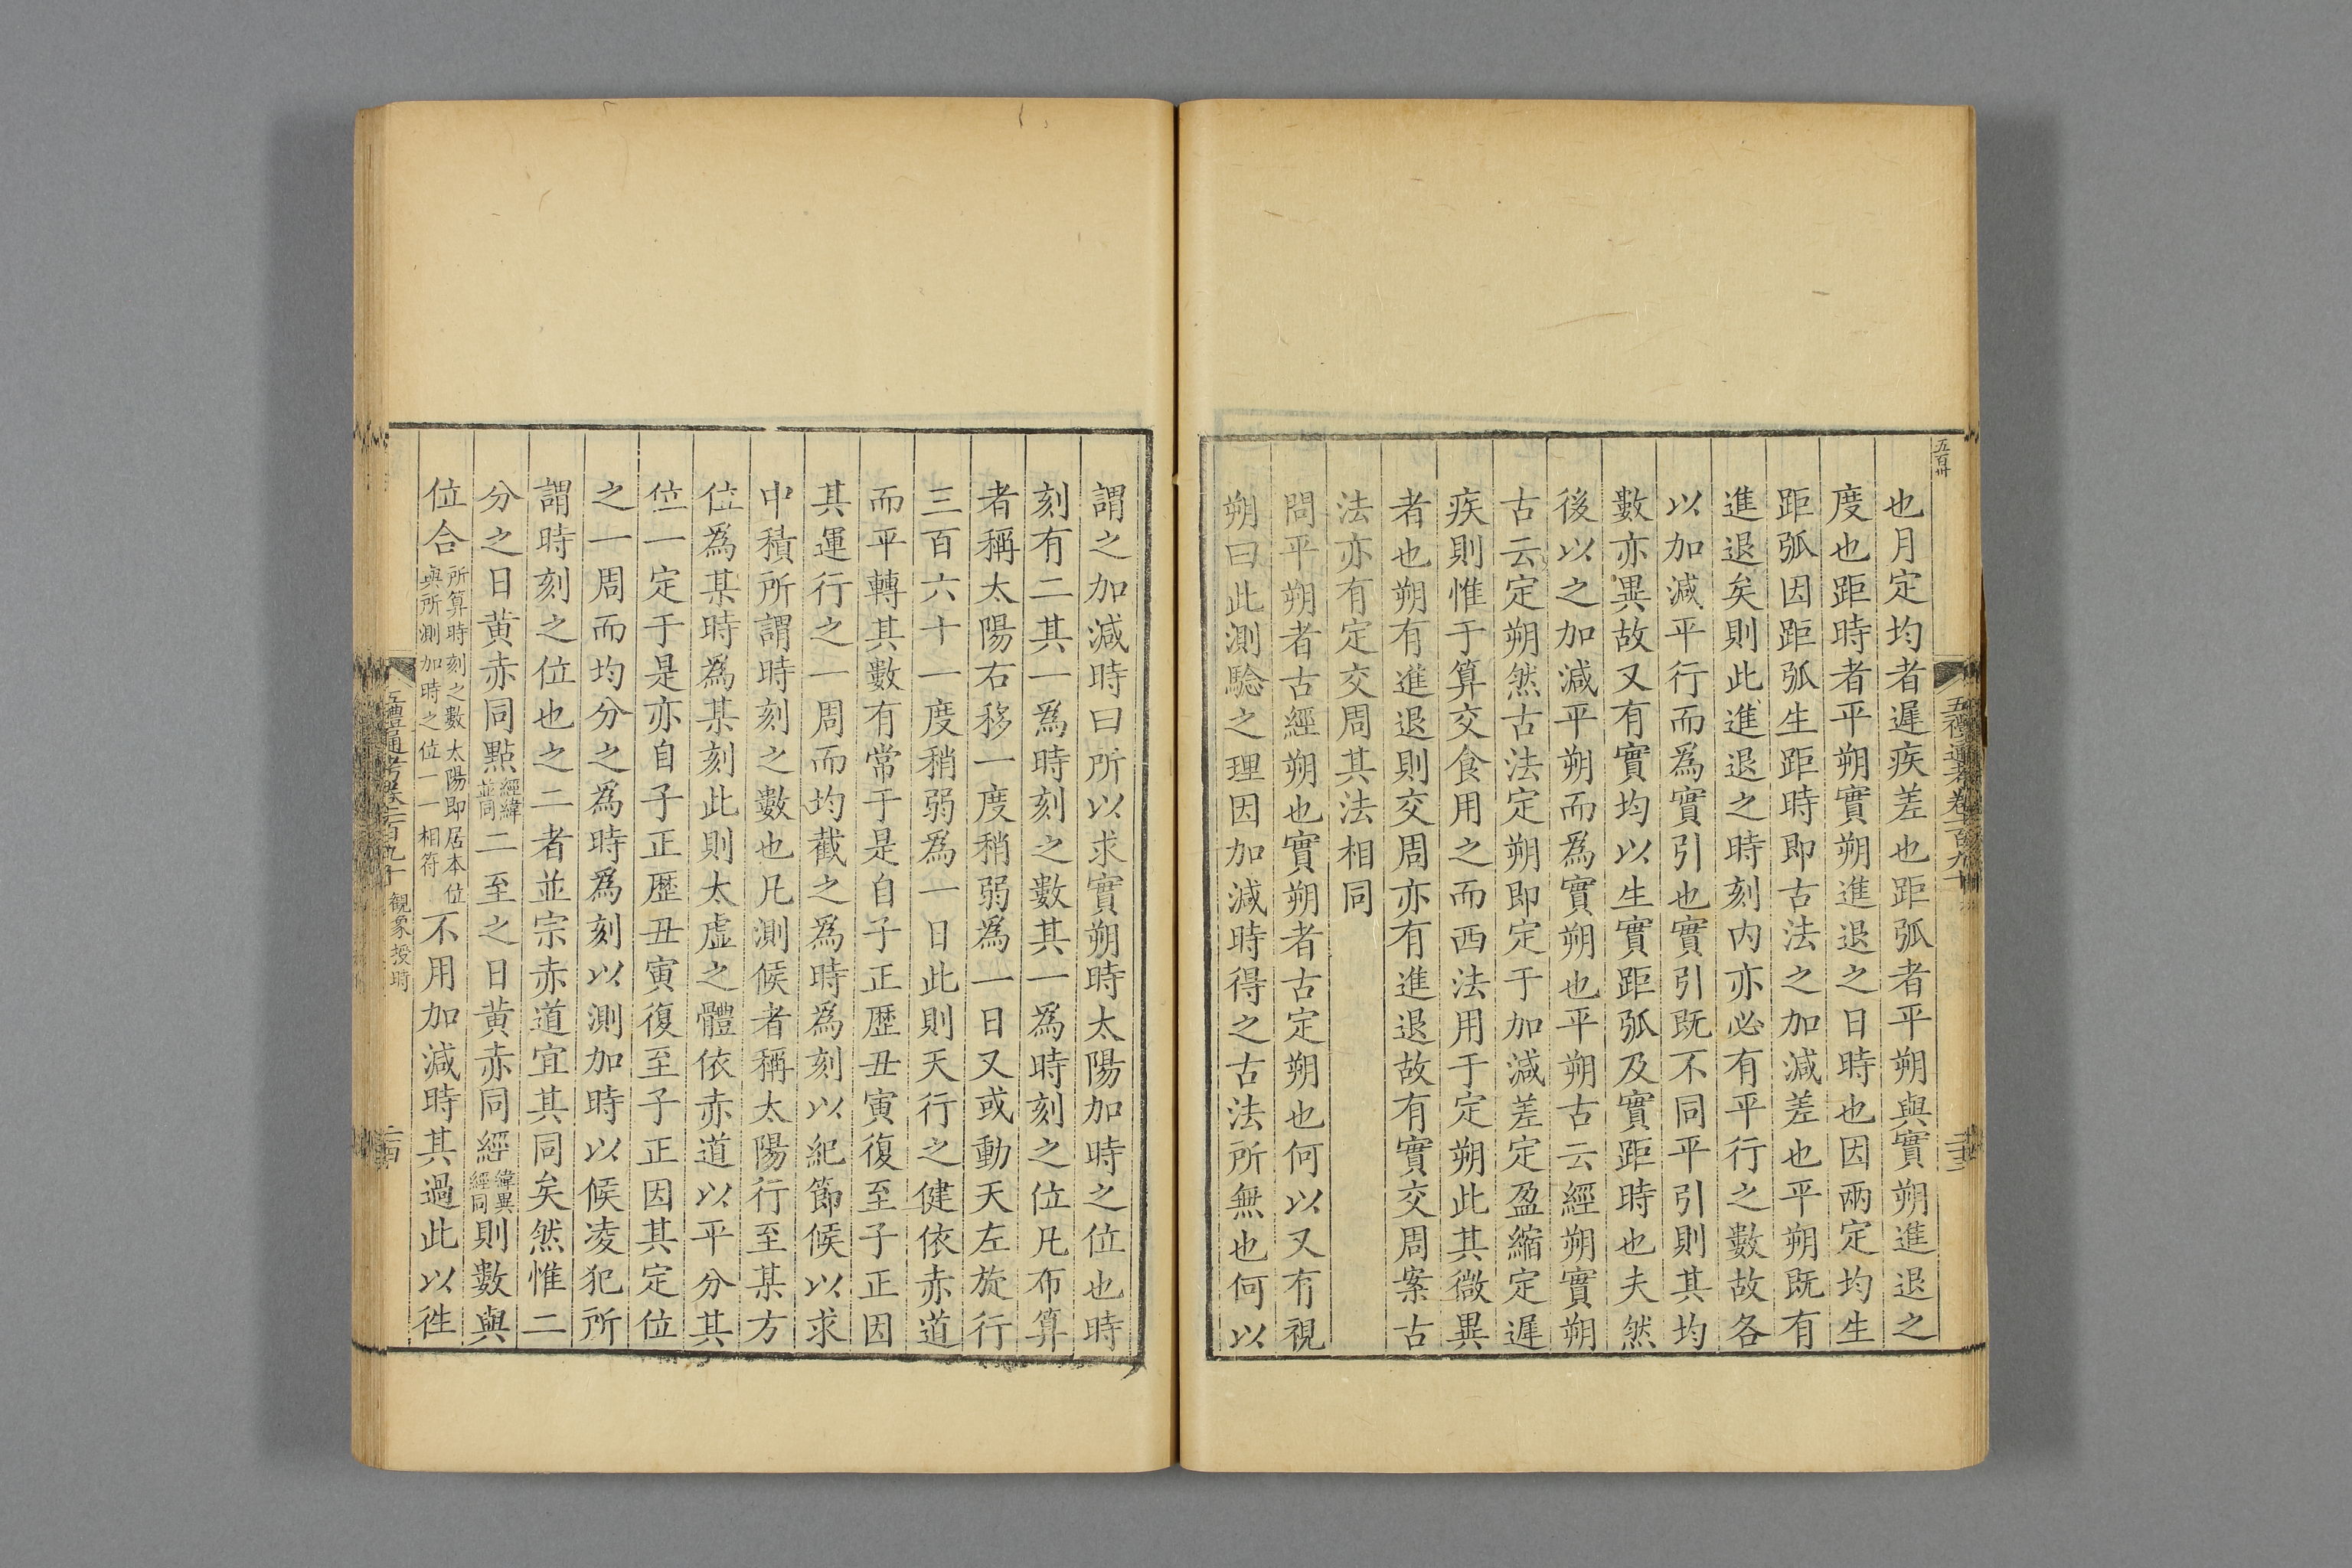 五百卅
五禮通考卷一百九十
二十三
也月定均者遲疾差也距弧者平朔與實朔進退之
度也距時者平朔實朔進退之日時也因兩定均生
距弧因距弧生距時即古法之加減差也平朔既有
進退矣則此進退之時刻内亦必有平行之數故各
以加減平行而為實引也實引既不同平引則其均
數亦異故又有實均以生實距弧及實距時也夫然
後以之加減平朔而為實朔也平朔古云經朔實朔
古云定朔然古法定朔即定于加減差定盈縮定遲
疾則惟于算交食用之而西法用于定朔此其微異
者也朔有進退則交周亦有進退故有實交周案古
法亦有定交周其法相同
問平朔者古經朔也實朔者古定朔也何以又有視
朔曰此測驗之理因加減時得之古法所無也何以
謂之加減時曰所以求實朔時太陽加時之位也時
刻有二其一為時刻之數其一為時刻之位凡布算
者稱太陽右移一度稍弱為一日又或動天左旋行
三百六十一度稍弱為一日此則天行之健依赤道
而平轉其數有常于是自子正歴丑寅復至子正因
其運行之一周而均截之為時為刻以紀節候以求
中積所謂時刻之數也凡測候者稱太陽行至某方
位為某時為某刻此則太虛之體依赤道以平分其
位一定于是亦自子正歴丑寅復至子正因其定位
之一周而均分之為時為刻以測加時以候凌犯所
謂時刻之位也之二者並宗赤道宜其同矣然惟二
分之日黄赤同點經緯並同二至之日黄赤同經緯異經同則數與
位合所算時刻之數太陽即居本位與所測加時之位一一相符不用加減時其過此以徃
五禮通考卷一百九十 觀象授時
二十四